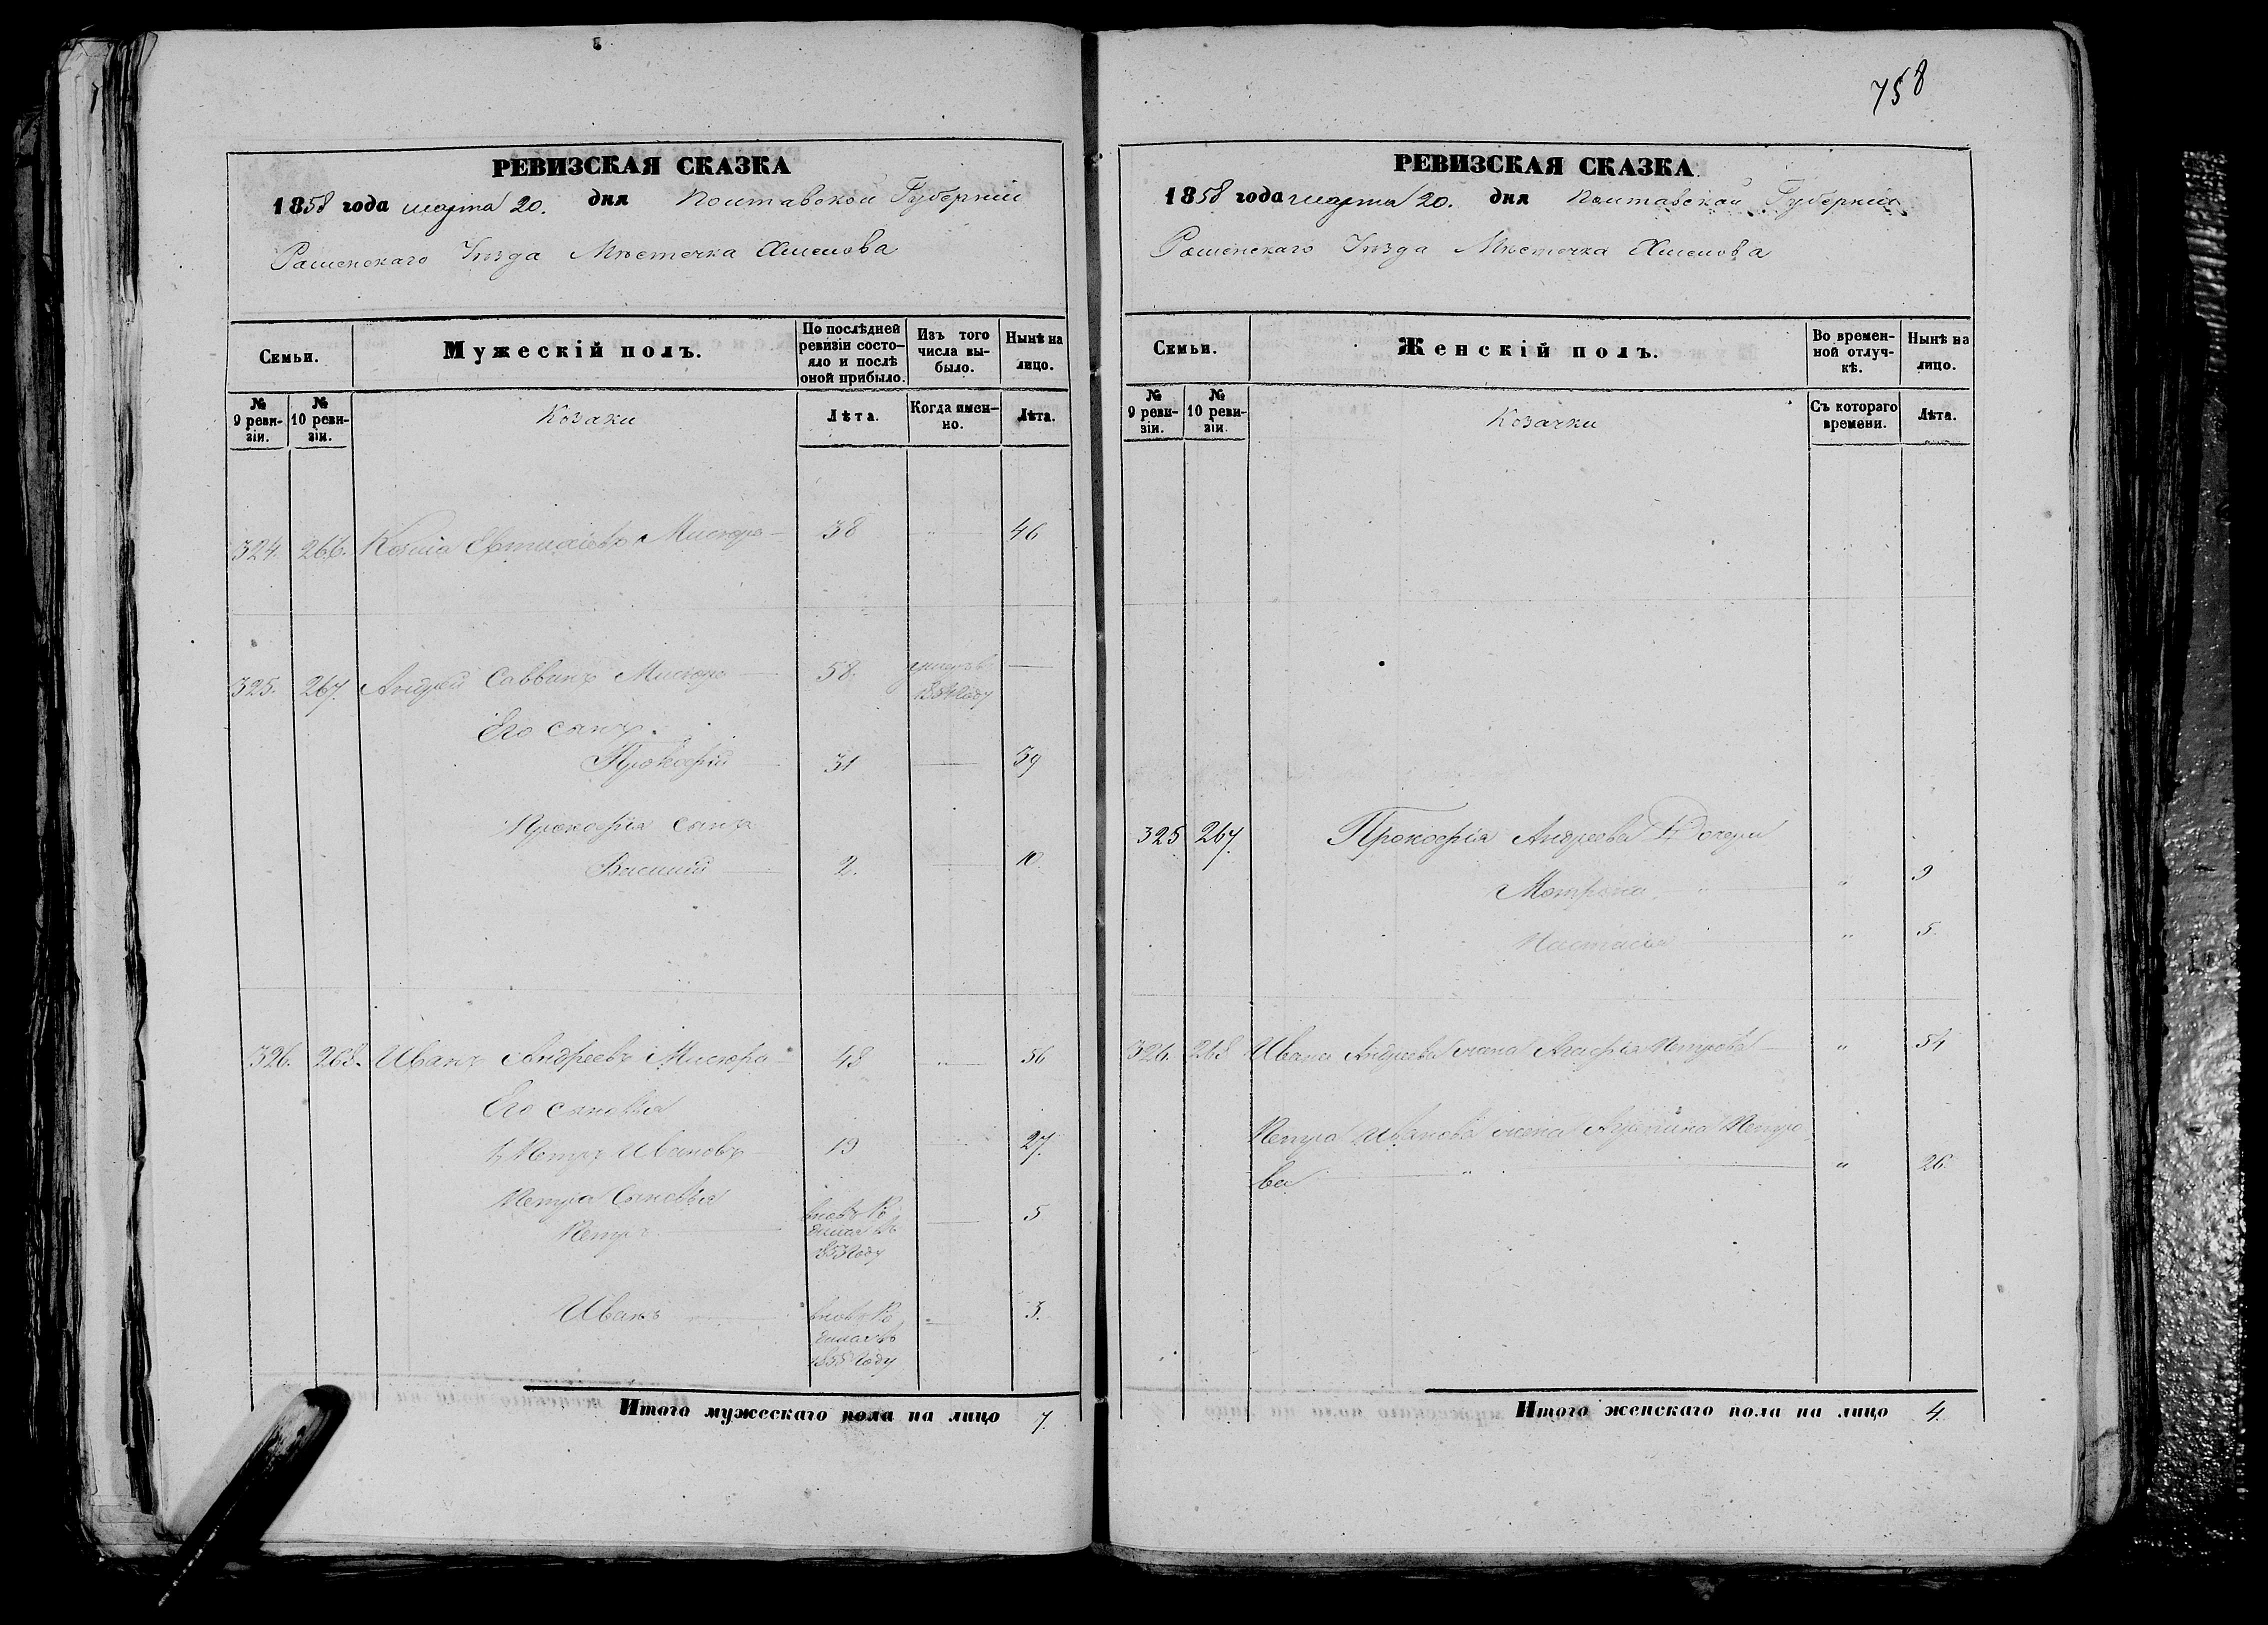 758
РЕВИЗСКАЯ СКАЗКА
1858 года марта 20. дня Полтавской Губерніи
Роменскаго Уѣзда Мѣстечка Хмелова
Семьи.
Мужескій полъ.
По послѣдней ревизіи состояло и послѣ оной прибыло.
Изъ того числа выбыло.
Нынѣ на лицо.
№ 9 ревизіи.
№ 10 ревизіи.
Козаки
Лѣта.
Когда именно.
Лѣта.
324. 266. Козма Мисюра 38 46
325. 267. Андрей Саввинъ Мисюра 58.
Его сынъ
Прокофій 31 39
Прокофія сынъ
Василій 2. 10.
326. 268. Иванъ Андреевъ Мисюра 48 56
Его сыновья
1 Петръ Ивановъ 19 27.
Петра Сыновья
Петръ 5
1853 году
Иванъ 3.
1855 году
Итого мужескаго пола на лицо 7.
РЕВИЗСКАЯ СКАЗКА
1858 года марта 20. дня Полтавской Губерніи
Роменскаго Уѣзда Мѣстечка Хмелова
Семьи.
Женскій полъ.
Во временной отлучкѣ.
Нынѣ на лицо.
№ 9 ревизіи.
№ 10 ревизіи.
Козачки
Съ котораго времени.
Лѣта.
325 267. Прокофія Андреева Дочери
Мотрона " 9
Настасья " 5.
326. 268 Ивана Андреева жена Агафія Петрова " 54
Петра Иванова жена Петро
ва " 26.
Итого женскаго пола на лицо 4.